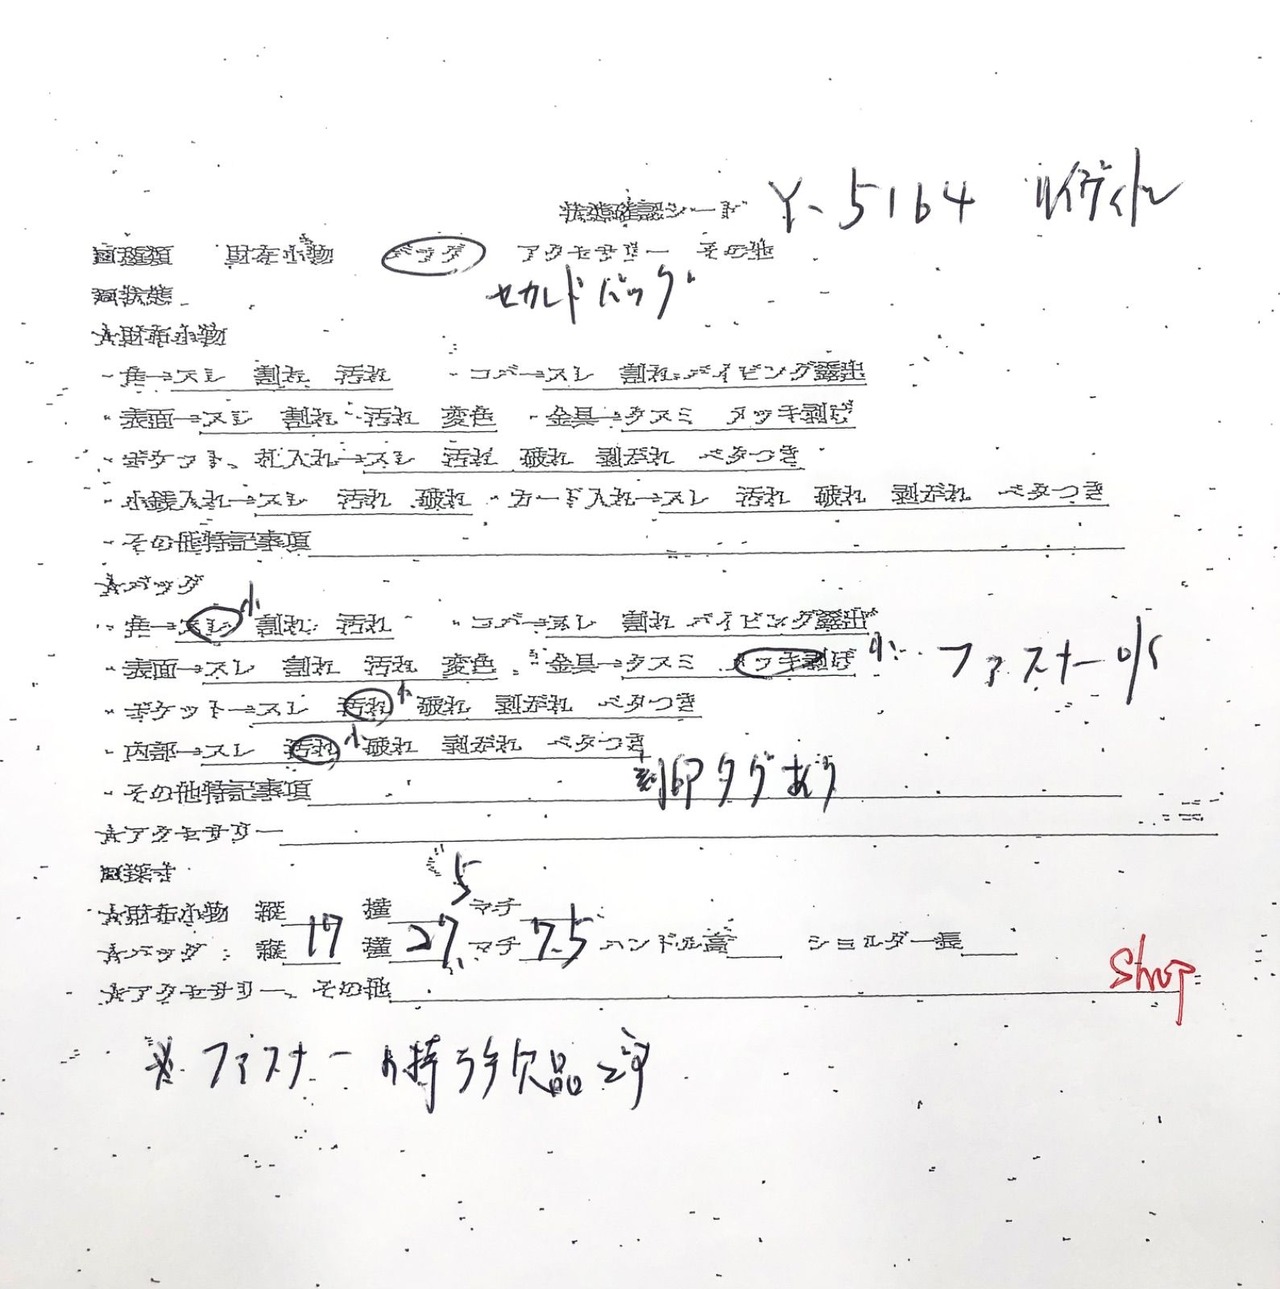 状態確認シート Y-5164 ルイヴィトン
■種類 財布小物 バッグ アクセサリー その他
セカンドバッグ
■状態
★財布小物
・角→スレ 割れ 汚れ ・コバ→スレ 割れ パイピング露出
・表面→スレ 割れ 汚れ 変色 ・金具→クスミ メッキ剥げ
・ポケット、札入れ→スレ 汚れ 破れ 剥がれ ベタつき
・小銭入れ→スレ 汚れ 破れ ・カード入れ→スレ 汚れ 破れ 剥がれ ベタつき
・その他特記事項
★バッグ
・角→スレ小 割れ 汚れ ・コバ→スレ 割れ パイピング露出
・表面→スレ 割れ 汚れ 変色 ・金具→クスミ メッキ剥げ小 ファスナーo/s
・ポケット→スレ 汚れ小 破れ 剥がれ ベタつき
・内部→スレ 汚れ小 破れ 剥がれ ベタつき
・その他特記事項 刻印タグあり
★アクセサリー
■採寸
★財布小物 縦 横 マチ
★バッグ : 縦 17 横 27.5 マチ 7.5 ハンドル高 ショルダー長
★アクセサリー、その他
Shop
※ファスナー 持ち手欠品